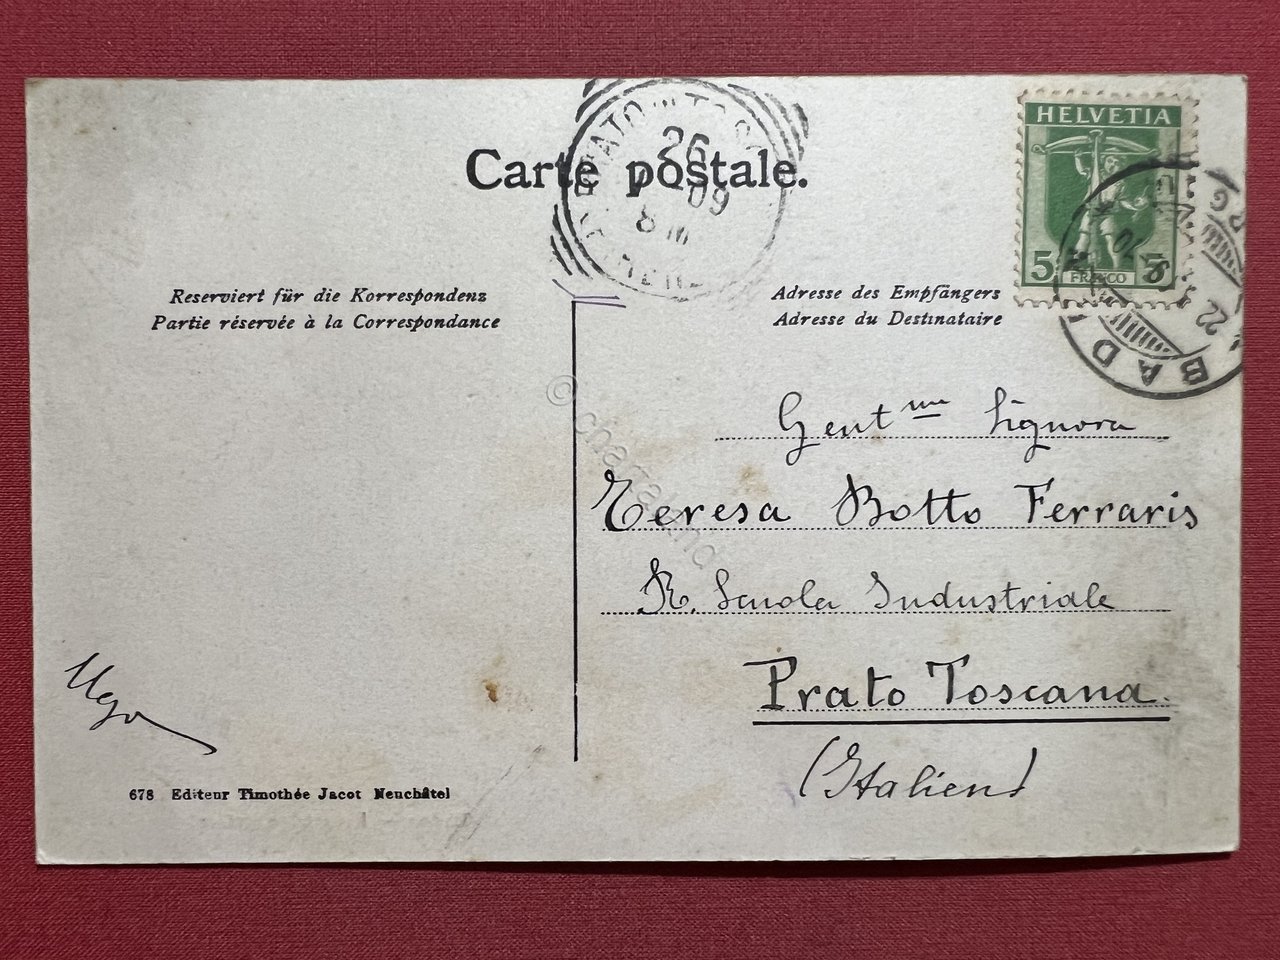 Carte postale.
26
09
8 M
HELVETIA
5
FRANCO
BAD
22
Reserviert für die Korrespondenz
Partie réservée à la Correspondance
Adresse des Empfängers
Adresse du Destinataire
Gent ma Signora
Teresa Botto Ferraris
R. Scuola Industriale
Prato Toscana.
(Italien)
Ugo
678 Editeur Timothée Jacot Neuchâtel
© chartaland